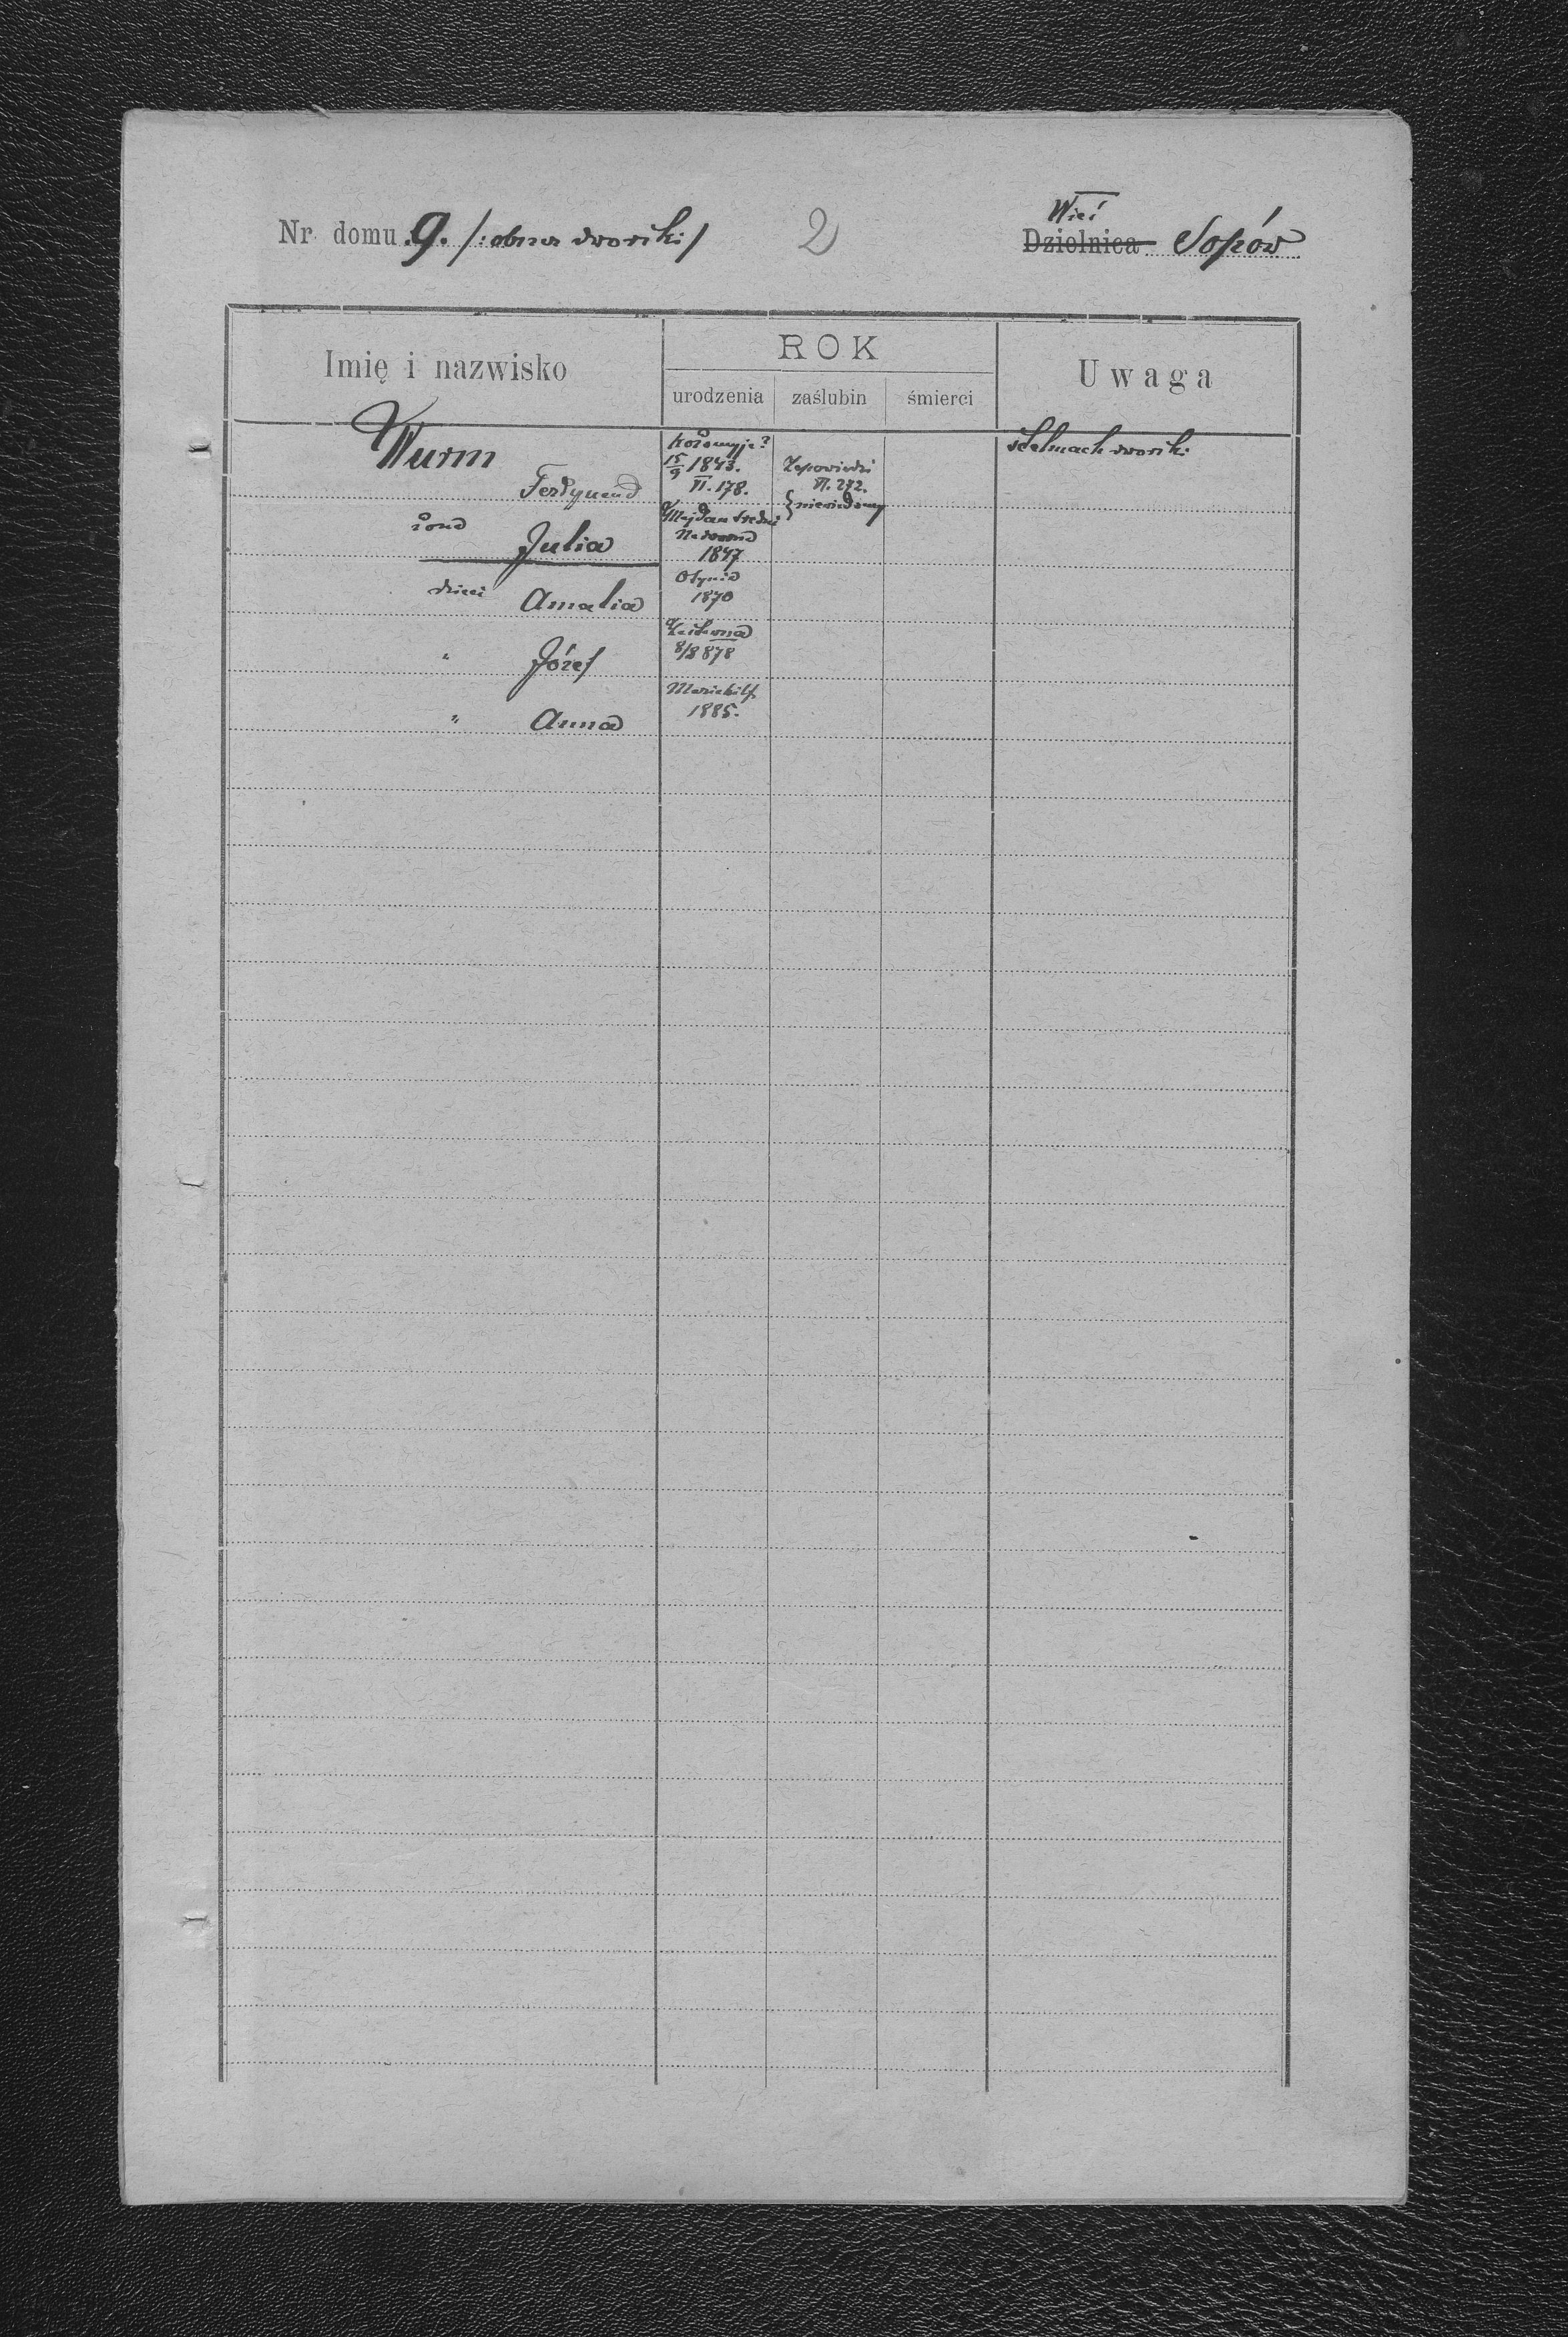 Nr domu 9. /: obszar dworski :/
2
Wieś
Dzielnica Sopów
Imię i nazwisko
ROK
Uwaga
urodzenia zaślubin śmierci
Wurm
Kołomyja?
stelmach dworski
15/9 1843. Zapowiedzi
Ferdynand VI. 178. VI. 272.
Majdan średni niewiadomy
żona Julia
Nadwórna
1847
dzieci Amalia Otynia
1870
" Józef
8/8 878
Mariahilf
" Anna 1885.